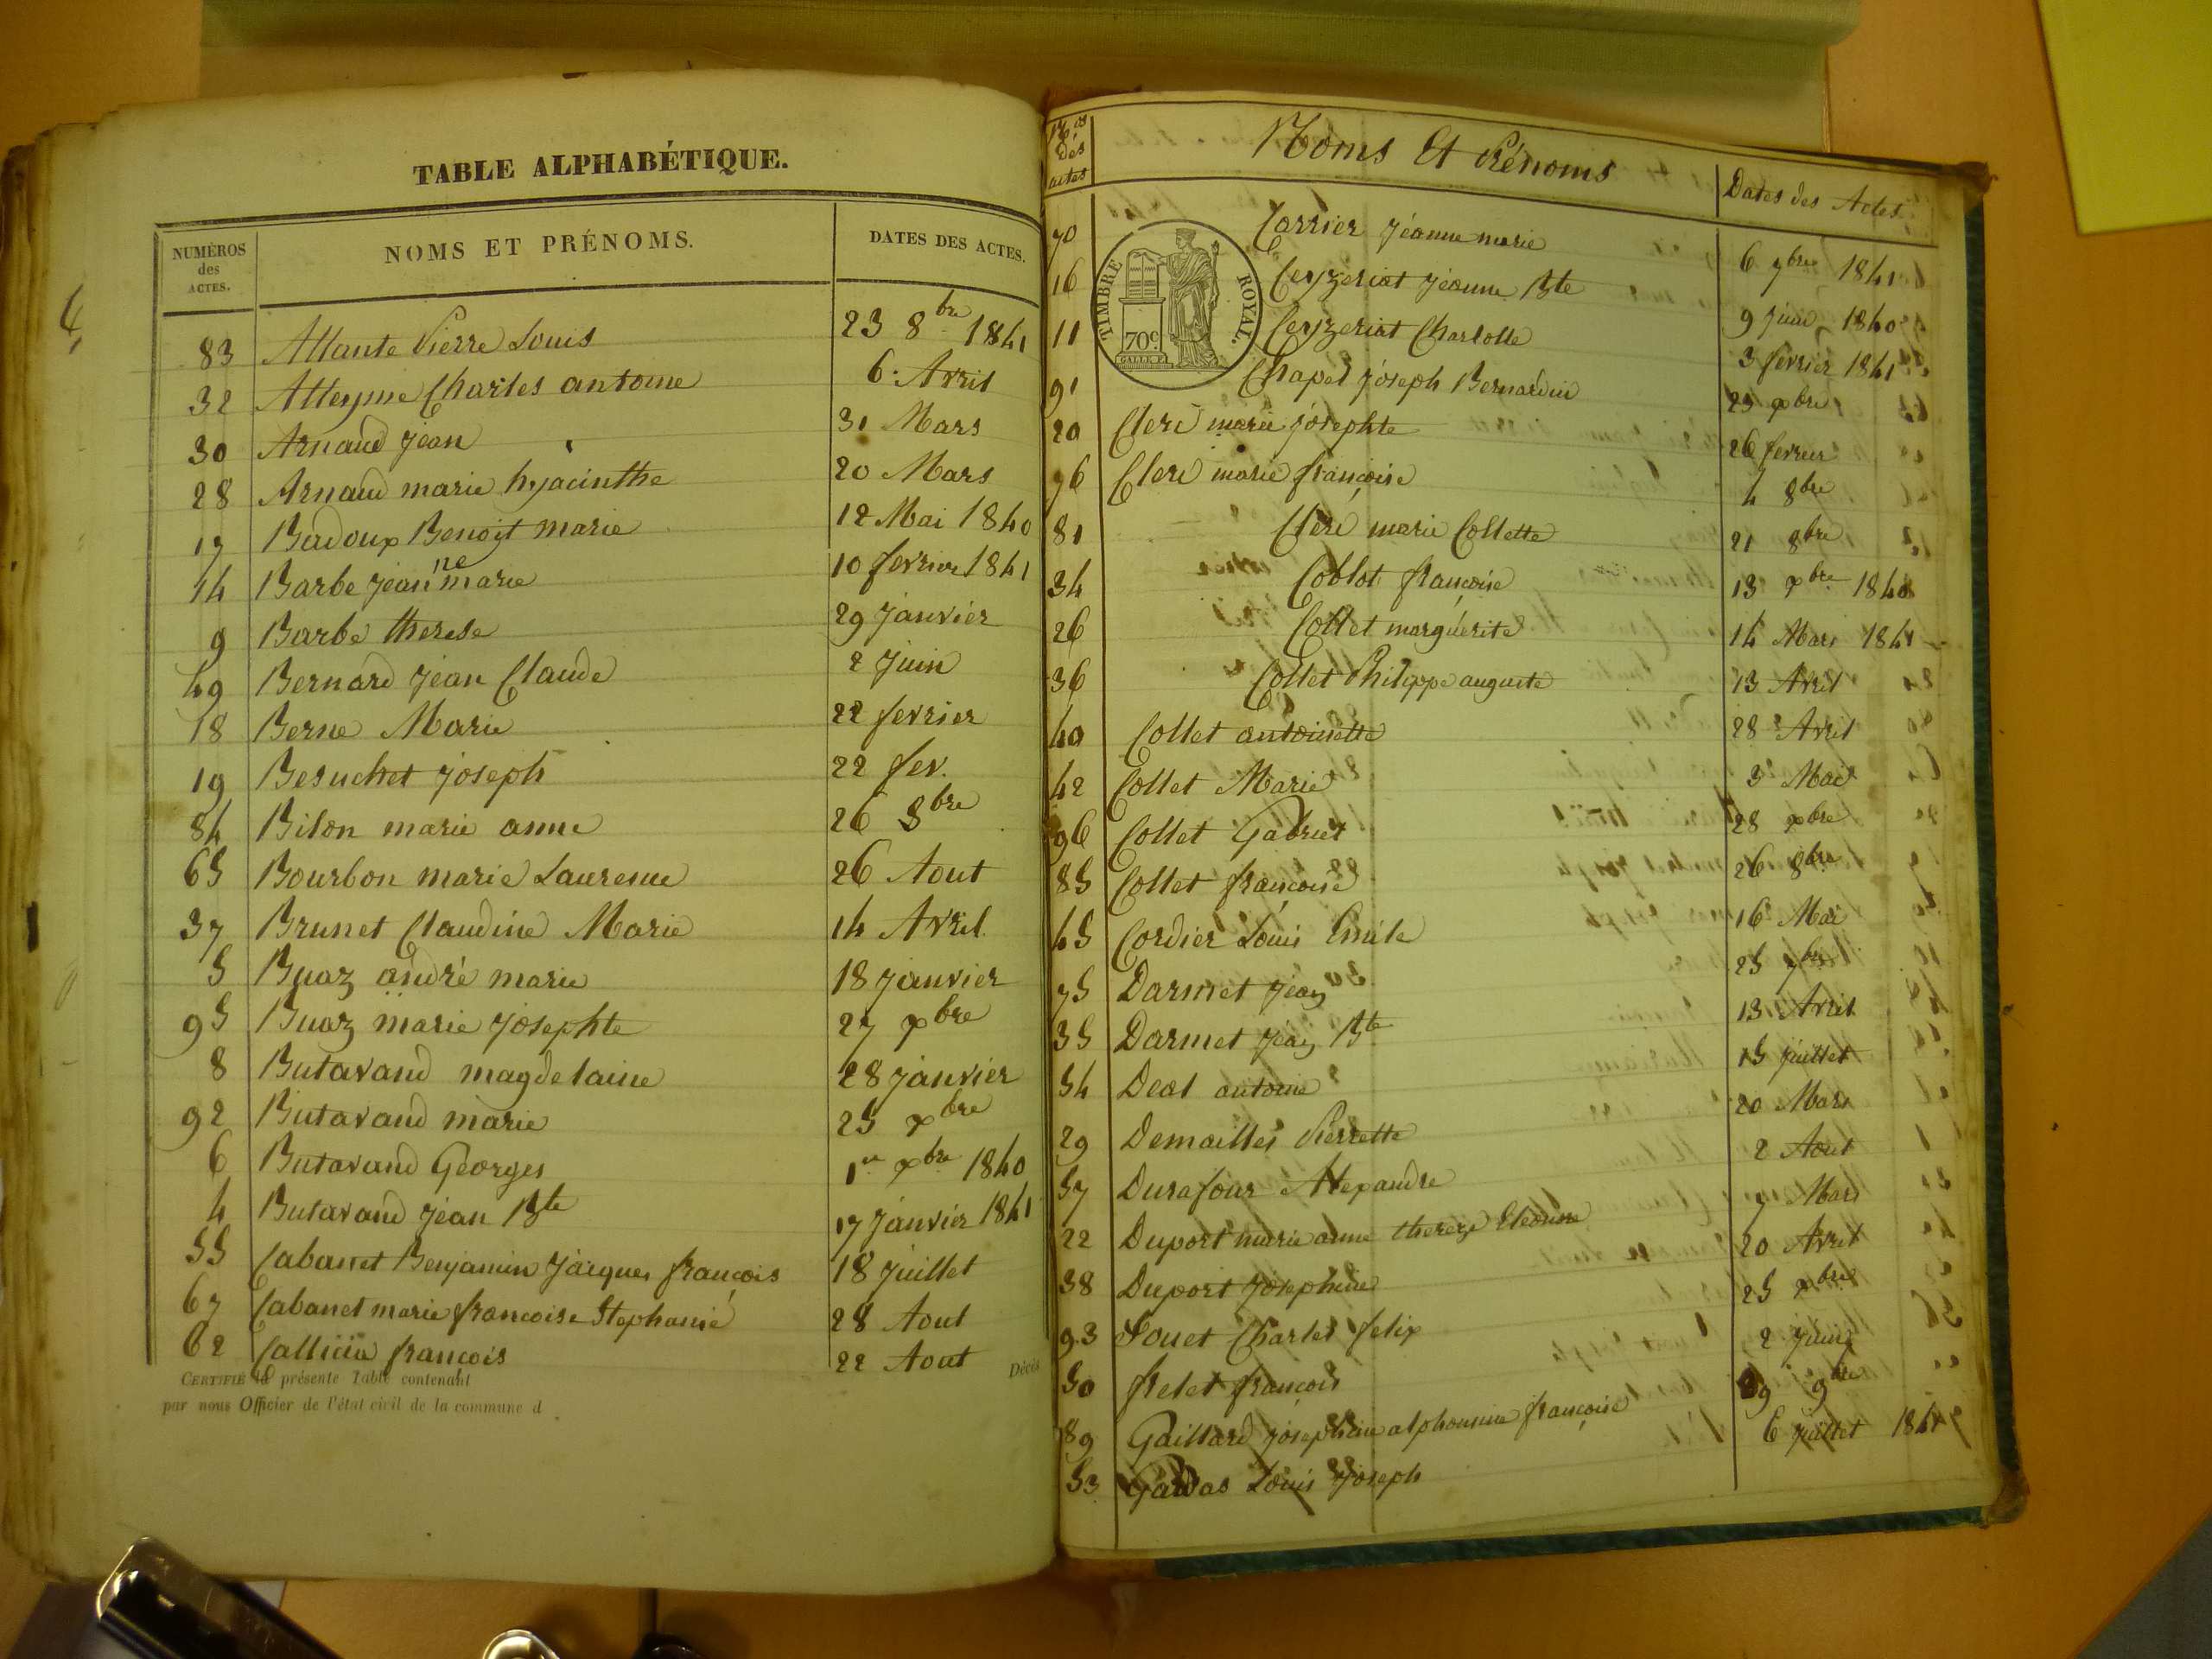 TABLE ALPHABÉTIQUE.
NUMÉROS des ACTES. NOMS ET PRÉNOMS. DATES DES ACTES.
83 Allante Pierre Louis 23 8bre 1841
32 Alleyme Charles antoine 6 Avril
30 Arnaud jean 31 Mars
28 Arnaud marie hyacinthe 20 Mars
17 Badoux Benoit marie 12 Mai 1840
14 Barbe jeanne marie 10 fevrier 1841
9 Barbe therese 29 janvier
49 Bernard jean Claude 2 Juin
18 Berne Marie 22 fevrier
19 Besuchet joseph 22 fev.
84 Bilon marie anne 26 8bre
65 Bourbon marie Laurence 26 Aout
37 Brunet Claudine Marie 14 Avril
5 Buaz andré marie 18 janvier
95 Buaz marie josephte 27 xbre
8 Butavand magdelaine 28 janvier
92 Butavand marie 25 xbre
6 Butavand Georges 1er xbre 1840
4 Butavand jean Bte 17 janvier 1841
55 Cabanet Benjamin jacques françois 18 juillet
67 Cabanet marie francoise Stephanie 28 Aout
62 françois 22 Aout
CERTIFIÉ la présente Table contenant Décès
par nous Officier de l'état civil de la commune d
Nos des actes Noms Et Prénoms Dates des Actes
TIMBRE ROYAL.
70c.
70 Carrier jeanne marie 6 7bre 1841
16 Ceyzeriat jeanne Bte 9 juin 1840
11 Ceyzeriat Charlotte 3 fevrier 1841
91 Chapel joseph Bernardin 23 xbre
20 Clerc marie josephte 26 fevrier
76 Clerc marie françoise 4 8bre
81 Clerc marie Collette 21 8bre
34 Coblot françoise 13 xbre 1840
26 Collet marguerite 14 Mars 1841
36 Collet Philippe auguste 13 Avril
40 Collet antoinette 28 Avril
42 Collet Marie 3 Mai
96 Collet Gabriel 28 xbre
85 Collet francoise 26 8bre
45 Cordier Louis Emile 16 Mai
75 Darmet jean 25 7bre
35 Darmet jean Bte 13 Avril
54 Deal antoine 15 juillet
29 Demailles Pierrette 20 Mars
57 Durafour Alexandre 2 Aout
22 Duport marie anne thereze Eleonore 7 Mars
38 Duport josephine 20 Avril
93 Fouet Charles felix 25 xbre
50 frelet françois 2 juin
89 Gaillard josephine alphonsine françoise 29 9bre
53 Gardas Louis joseph 6 juillet 1841